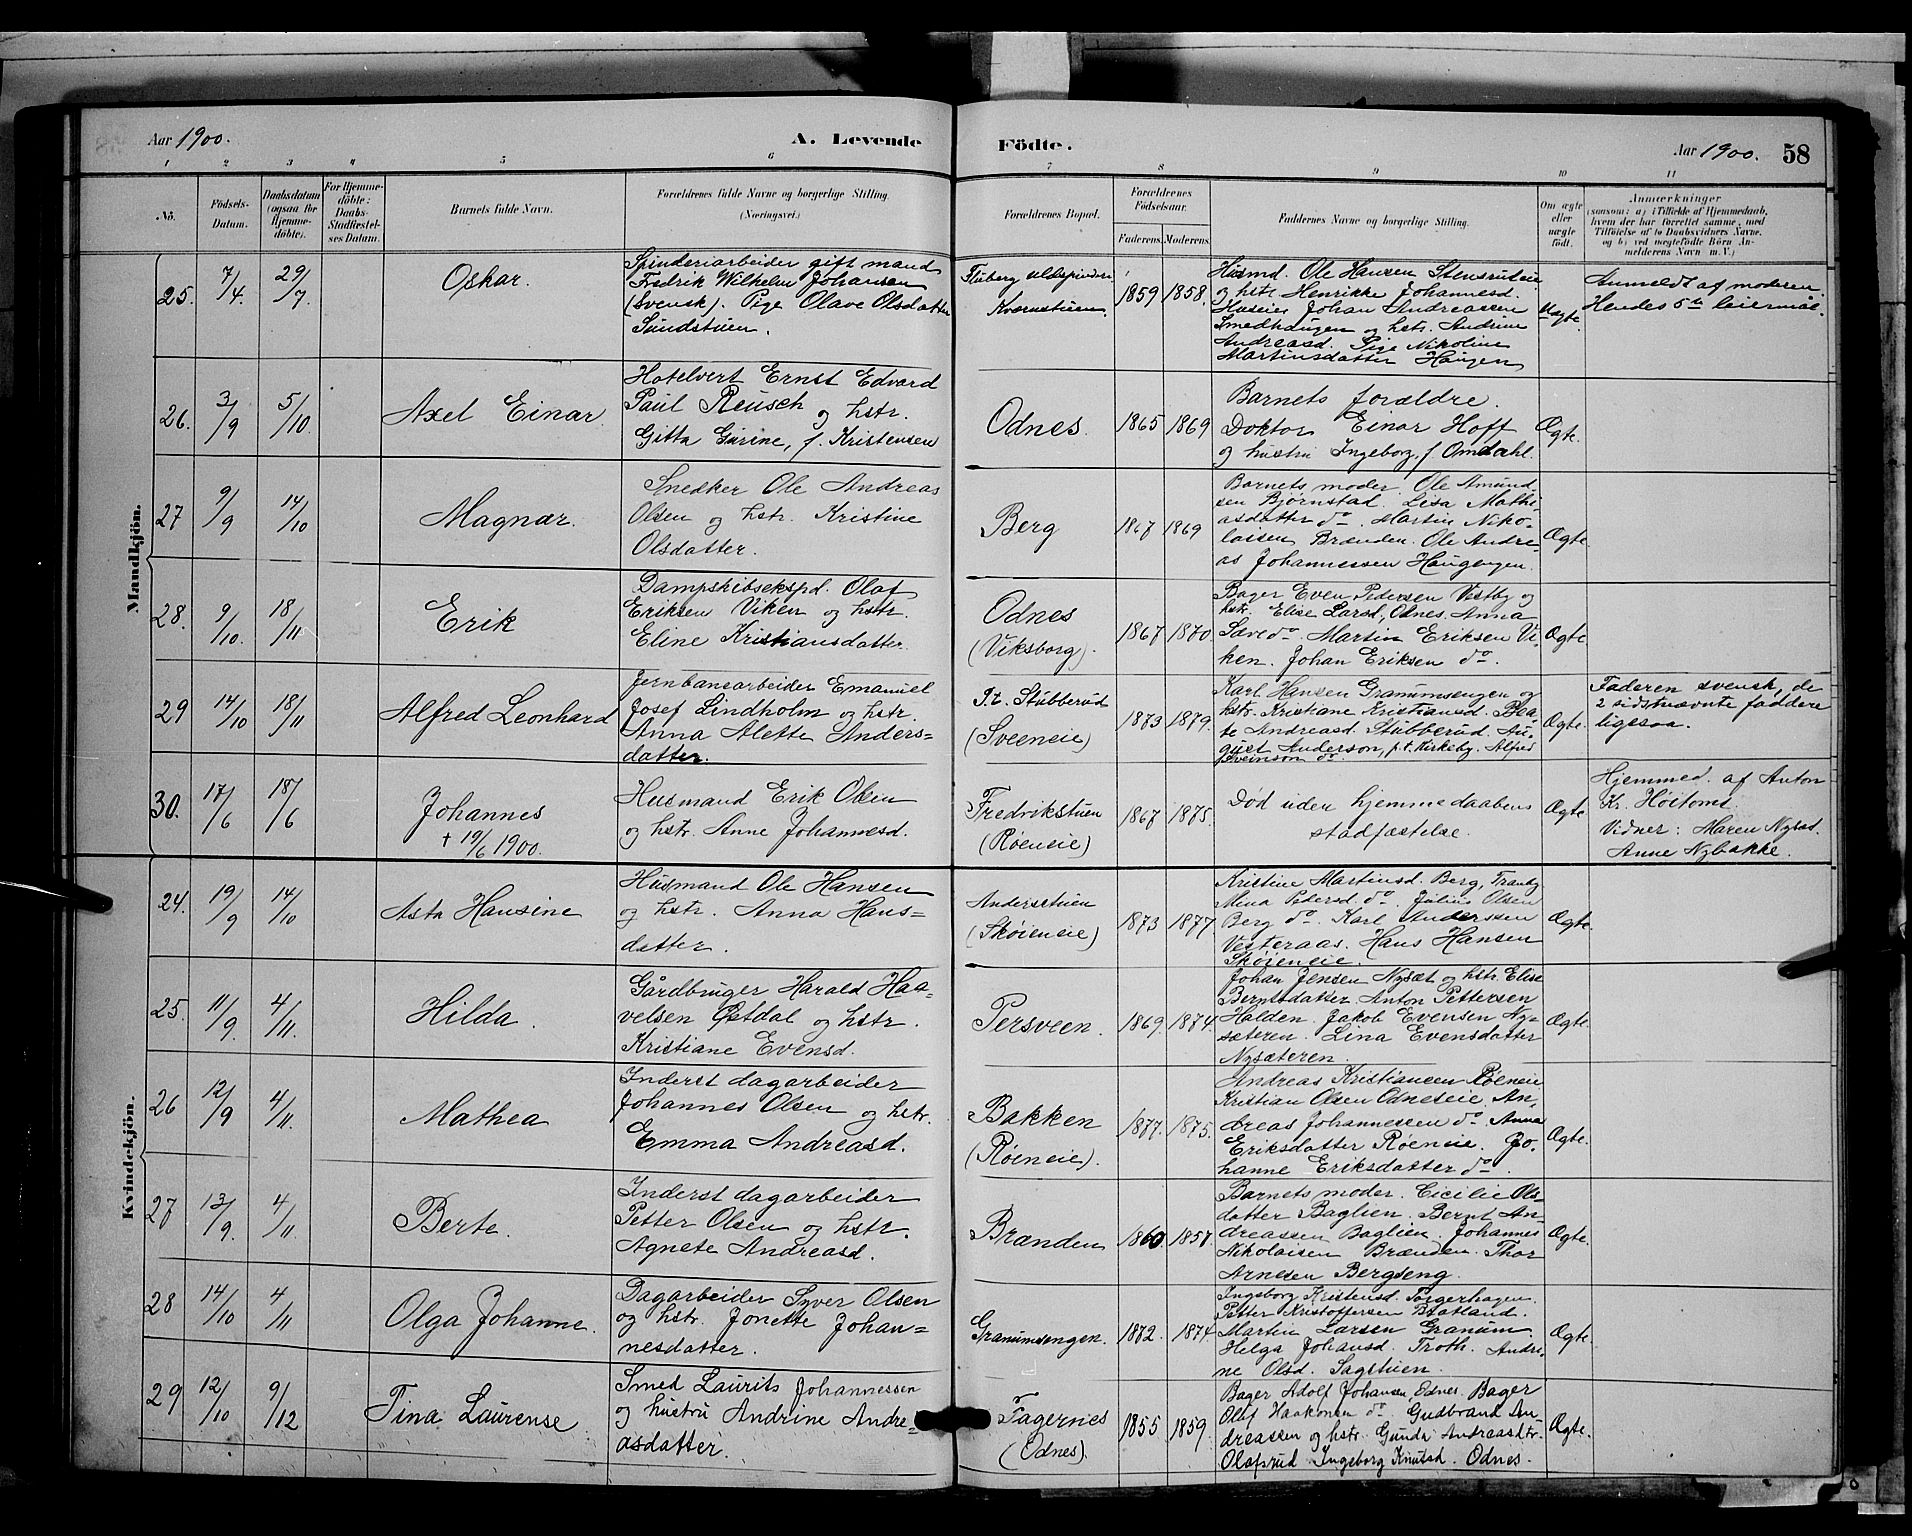 Aar 1900. A. Levende Födte. Aar 1900. 58
1 2 3 4 5 6 7 8 9 10 11
No. Födsels-Datum. Daabsdatum (ogsaa for Hjemmedöbte). For Hjemmedöbte: Daabs-Stadfæstelses Datum. Barnets fulde Navn. Forældrenes fulde Navne og borgerlige Stilling. (Næringsvei.) Forældrenes Bopæl. Forældrenes Födselsaar. Faderens. Moderens. Faddernes Navne og borgerlige Stilling. Om ægte eller uægte födt. Anmærkninger
(saasom: a) i Tilfælde af Hjemmedaab,
hvem der har forrettet samme, med
Tilföielse af to Daabsvidners Navne,
og b) ved uægtefödte Börn Anmelderens Navn m.V.)
Mandkjön.
25. 7/4. 29/7. Oskar.
Spinderiarbeider gift mand
Fredrik Wilhelm Johansen
(svensk). Pige Olave Olsdatter
Sundstuen.
Fluberg uldspinderi
Kværnstuen.
1859 1858.
Husmd. Ole Hansen Stensrudeie
og hstr. Henrikke Johannesd.
Huseier Johan Andreassen
Smedhaugen og hstr. Andrine
Andreasd. Pige Nikoline
Martinsdatter Haugen
Uægte.
Anmeldt af moderen.
Hendes 5te leiermål.
26. 3/9 5/10. Axel Einar.
Hotelvert Ernst Edvard
Paul Reusch og hstr.
Gitta Gurine, f. Kristensen
Odnes. 1865 1869
Barnets forældre.
Doktor Einar Hoff
og hustru Ingeborg, f. Omdahl.
Ægte.
27 9/9 14/10 Magnar.
Snedker Ole Andreas
Olsen og hstr. Kristine
Olsdatter.
Berg 1867 1869
Barnets moder. Ole Amund
sen Bjørnstad. Lisa Mathi
asdatter do. Martin Niko-
laisen Brænden. Ole Andre-
as Johannessen Haugengen.
Ægte.
28. 9/10. 18/11 Erik
Dampskibsekspd. Olaf
Eriksen Viken og hstr.
Eline Kristiansdatter.
Odnes
(Viksborg).
1867 1870.
Bager Even Pedersen Vestby og
hstr. Elise Larsd, Odnes. Anna
do. Martin Eriksen Vi-
ken. Johan Eriksen do.
Ægte
29 14/10 18/11 Alfred Leonhard
Jernbanearbeider Emanuel
Josef Lindholm og hstr.
Anna Alette Anders-
datter.
P.t. Stubberud
(Sveeneie)
1873 1879.
Karl Hansen Granumsengen og
hstr. Kristiane Kristiansd. Bea-
te Andreasd. Stubberud. Au-
gust Anderson, p.t. Kirkeby. Alfred
Sveinson do.
Ægte.
Faderen svensk, de
2 sidstnævnte faddere
ligesaa.
30. 17/6 18/6 Johannes
+ 19/6 1900.
Husmand Erik Olsen
og hstr. Anne Johannesd.
Fredrikstuen
(Røeneie)
1867 1875.
Død uden hjemmedaabens
stadfæstelse.
Ægte
Hjemmed. af Anton
Kr. Høitomt.
Vidner: Maren Nysæt.
Anne Nybakke.
Kvindekjön.
24. 19/9 14/10 Asta Hansine
Husmand Ole Hansen
og hstr. Anna Hans-
datter.
Anderstuen
(Skøieneie)
1873 1877
Kristine Martinsd. Berg, Tranby
Mina Pedersd. do. Julius Olsen
Berg do. Karl Anderssen
Vesteraas. Hans Hansen
Skøieneie.
Ægte.
25. 11/9. 4/11. Hilda.
Gårdbruger Harald Haa-
velsen Østdal og hstr.
Kristiane Evensd.
Persveen. 1869. 1874.
Johan Jensen Nysæt og hstr. Elise
Berntsdatter. Anton Pettersen
Halden. Jakob Evensen Ny-
sæteren. Lina Evensdatter
Nysæteren.
Ægte.
26 12/9 4/11. Mathea
Inderst dagarbeider
Johannes Olsen og hstr.
Emma Andreasd.
Bakken
(Røeneie).
1877. 1875.
Andreas Kristiansen Røeneie
Kristian Olsen Odneseie An-
dreas Johannessen do. Anna
Eriksdatter Røeneie. Jo-
hanne Eriksdatter do.
Ægte.
27 13/9. 4/11. Berte.
Inderst dagarbeider
Petter Olsen og hstr.
Agnete Andreasd.
Brænden 1860. 1857.
Barnets moder. Cicilie Ols-
datter Baglien. Bernt An-
dreassen Baglien. Johannes
Nikolaisen Brænden. Thor
Arnesen Bergseng.
Ægte.
28 14/10 4/11 Olga Johanne.
Dagarbeider Syver Olsen
og hstr. Jonette Johan-
nesdatter.
Granumsengen. 1872. 1874
Ingeborg Kristensd.
Petter Kristoffersen Bratland.
Martin Larsen Granum.
Helga Johansd. Troth. Andri-
ne Olsd. Sagstuen.
Ægte.
29 12/10 9/12 Tina Laurense
Smed Laurits Johannessen
og hustru Andrine Andre-
asdatter.
Fagernes
(Odnes).
1855 1859.
Bager Adolf Johansen, Odnes. Bager
Olaf Haakonsen do. Gudbrand An-
dreassen og hstr. Gunda Andreasdtr.
Olafsrud Ingeborg Knutsd. Odnes.
Ægte.